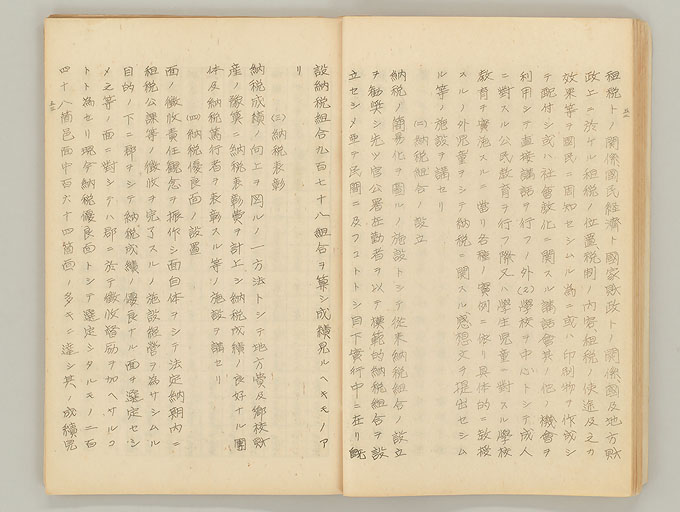 租税トノ関係国民経済ト国家財政トノ関係国及地方財
政上ニ於ケル租税ノ位置税制ノ内容租税ノ使途及之カ
効果等ヲ国民ニ周知セシムル為ニ或ハ印刷物ヲ作成シ
テ配付シ或ハ社会教化ニ関スル講話会其ノ他ノ機会ヲ
利用シテ直接講話ヲ行フノ外(2)学校ヲ中心トシテ成人
ニ対スル公民教育ヲ行フ際又ハ学生児童ニ対スル学校
教育ヲ実施スルニ当リ各種ノ実例ニ依リ具体的ニ
スルノ外児童ヲシテ納税ニ関スル感想文ヲ提出セシム
ル等ノ施設ヲ講セリ
(二)納税組合ノ設立
納税ノ簡易化ヲ図ルノ施設トシテ従来納税組合ノ設立
ヲ勧奨シ先ツ官公署在勤者ヲ以テ模範的納税組合ヲ設
立セシメ更ニ民間ニ及フコトトシ目下実行中ニ在リ既
設納税組合九百七十八組合ヲ算シ成績見ルヘキモノア
リ
(三)納税表彰
納税成績ノ向上ヲ図ルノ一方法トシテ地方費及郷校財
産ノ予算ニ納税表彰費ヲ計上シ納税成績ノ良好ナル団
体及納税篤行者ヲ表彰スル等ノ施設ヲ講セリ
(四)納税優良面ノ設置
面ノ徴収責任観念ヲ振作シ面自体ヲシテ法定納期内ニ
租税公課等ノ徴収ヲ完了スルノ施設経営ヲ為サシムル
目的ノ下ニ郡ヲシテ納税成績ノ優良ナル面ヲ選定セシ
メ之等ノ面ニ対シテハ郡ニ於テ徴収督励ヲ加ヘサルコ
トト為セリ現今納税優良面トシテ選定シタルモノ二百
四十八箇邑面中百六十四箇面ノ多キニ達シ其ノ成績見